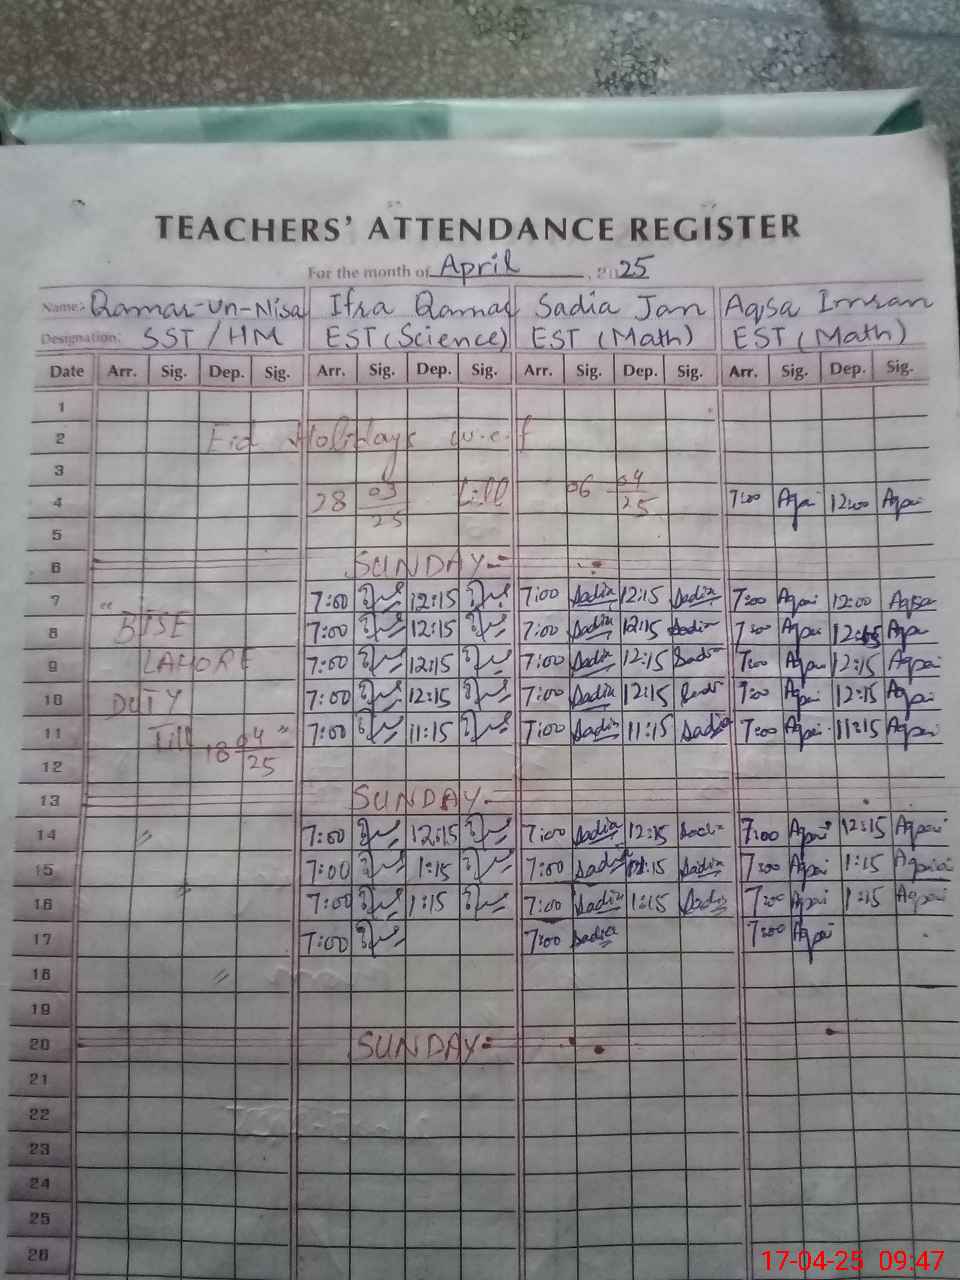 TEACHERS' ATTENDANCE REGISTER
For the month of April, 2025
Name:- Qamar-un-Nisa Ifra Qamar Sadia Jan Aqsa Imran
Designation: SST / HM EST (Science) EST (Math) EST (Math)
Date Arr. Sig. Dep. Sig. Arr. Sig. Dep. Sig. Arr. Sig. Dep. Sig. Arr. Sig. Dep. Sig.
1
2 Eid Holidays w.e.f
3
4 28 03/25 till 06 04/25 7:00 12:00
5
6 SUNDAY
7 " 7:00 12:15 7:00 Sadia 12:15 Sadia 7:00 12:00 Aqsa
8 BISE 7:00 12:15 7:00 Sadia 12:15 Sadia 7:00
9 LAHORE 7:00 12:15 7:00 Sadia 12:15 Sadia 7:00 12:15
10 DUTY 7:00 12:15 7:00 Sadia 12:15 7:00 12:15
11 Till 18 04/25 " 7:00 11:15 7:00 Sadia 11:15 Sadia 7:00 11:15
12
13 SUNDAY
14 " 7:00 12:15 7:00 Sadia 12:15 Sadia 7:00 12:15
15 7:00 1:15 7:00 Sadia 1:15 Sadia 7:00 1:15
16 7:00 1:15 7:00 Sadia 1:15 Sadia 7:00 1:15
17 7:00 7:00 Sadia 7:00
18 "
19
20 SUNDAY
21
22
23
24
25
26
17-04-25 09:47